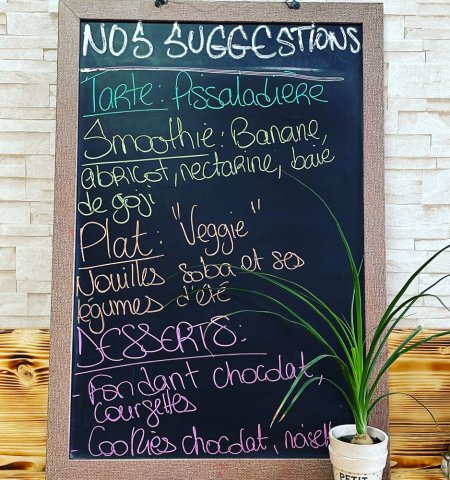 NOS SUGGESTIONS
Tarte: Pissaladiere
Smoothie: Banane,
abricot, nectarine, baie
de goji
Plat: "Veggie"
Nouilles soba et ses
légumes d'été
DESSERTS:
- Fondant chocolat,
courgettes
- Cookies chocolat, noisett
PETIT